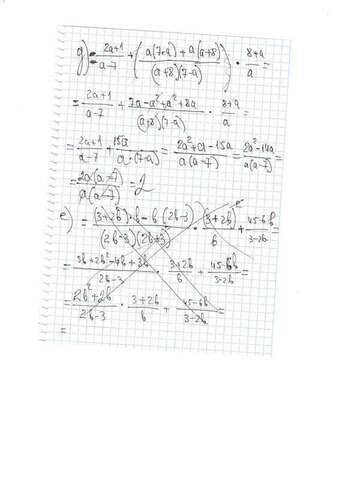 g) = 2a+1/a-7 + (a(7-a) + a(a+8)/(a+8)(7-a)) · 8+a/a =
= 2a+1/a-7 + 7a-a²+a²+8a/(a+8)(7-a) · 8+a/a =
= 2a+1/a-7 + 15a/a·(7-a) = 2a²+a-15a/a(a-7) = 2a²-14a/a(a-7) =
= 2a(a-7)/a(a-7) = 2
e) = (3+2b)·b-b(2b-3)/(2b-3)(2b+3) · (3+2b)/b + 45-6b/3-2b =
= 3b+2b²-4b+3b/2b-3 · 3+2b/b + 45-6b/3-2b =
= 2b²+2b/2b-3 · 3+2b/b + 45-6b/3-2b =
=